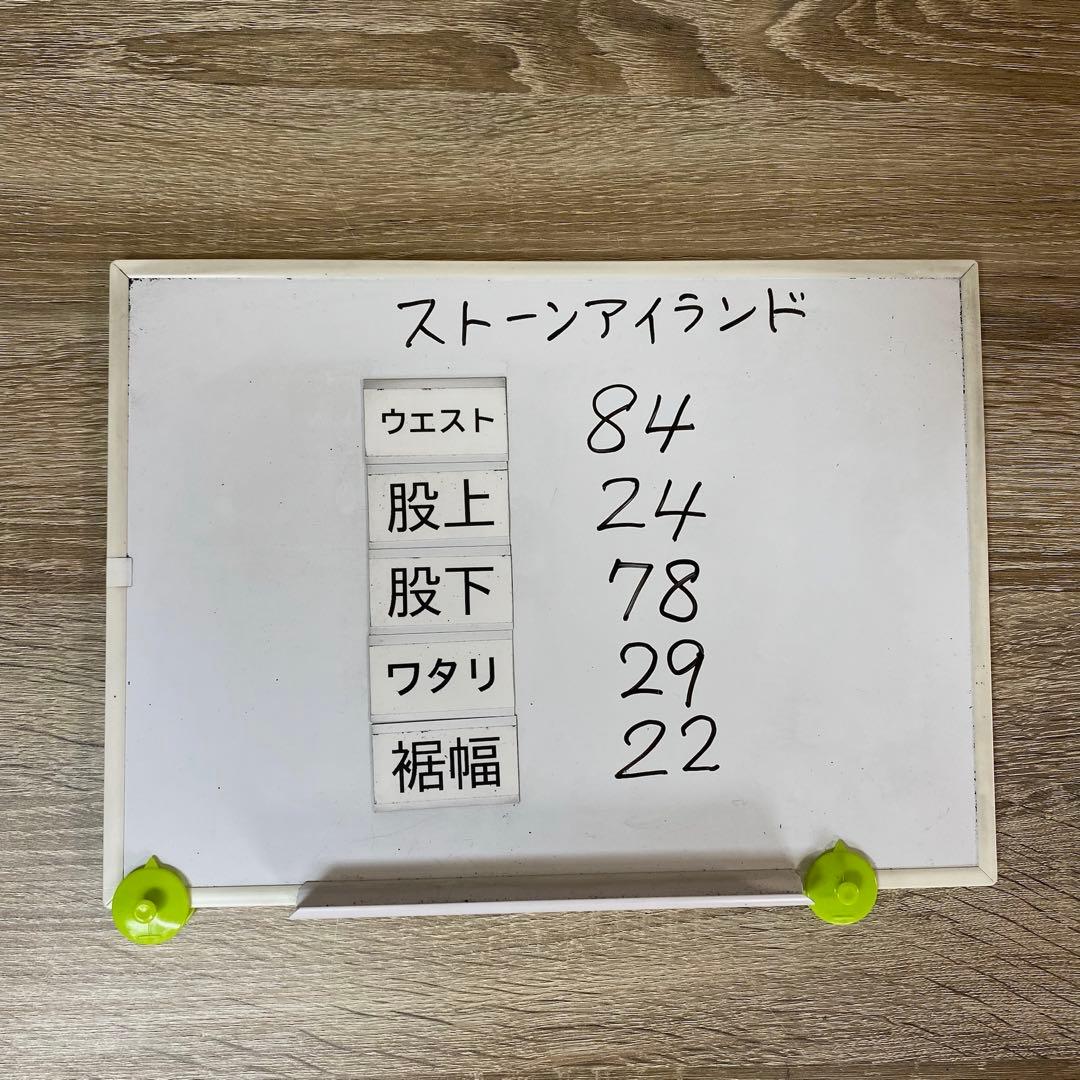 ストーンアイランド
ウエスト 84
股上 24
股下 78
ワタリ 29
裾幅 22